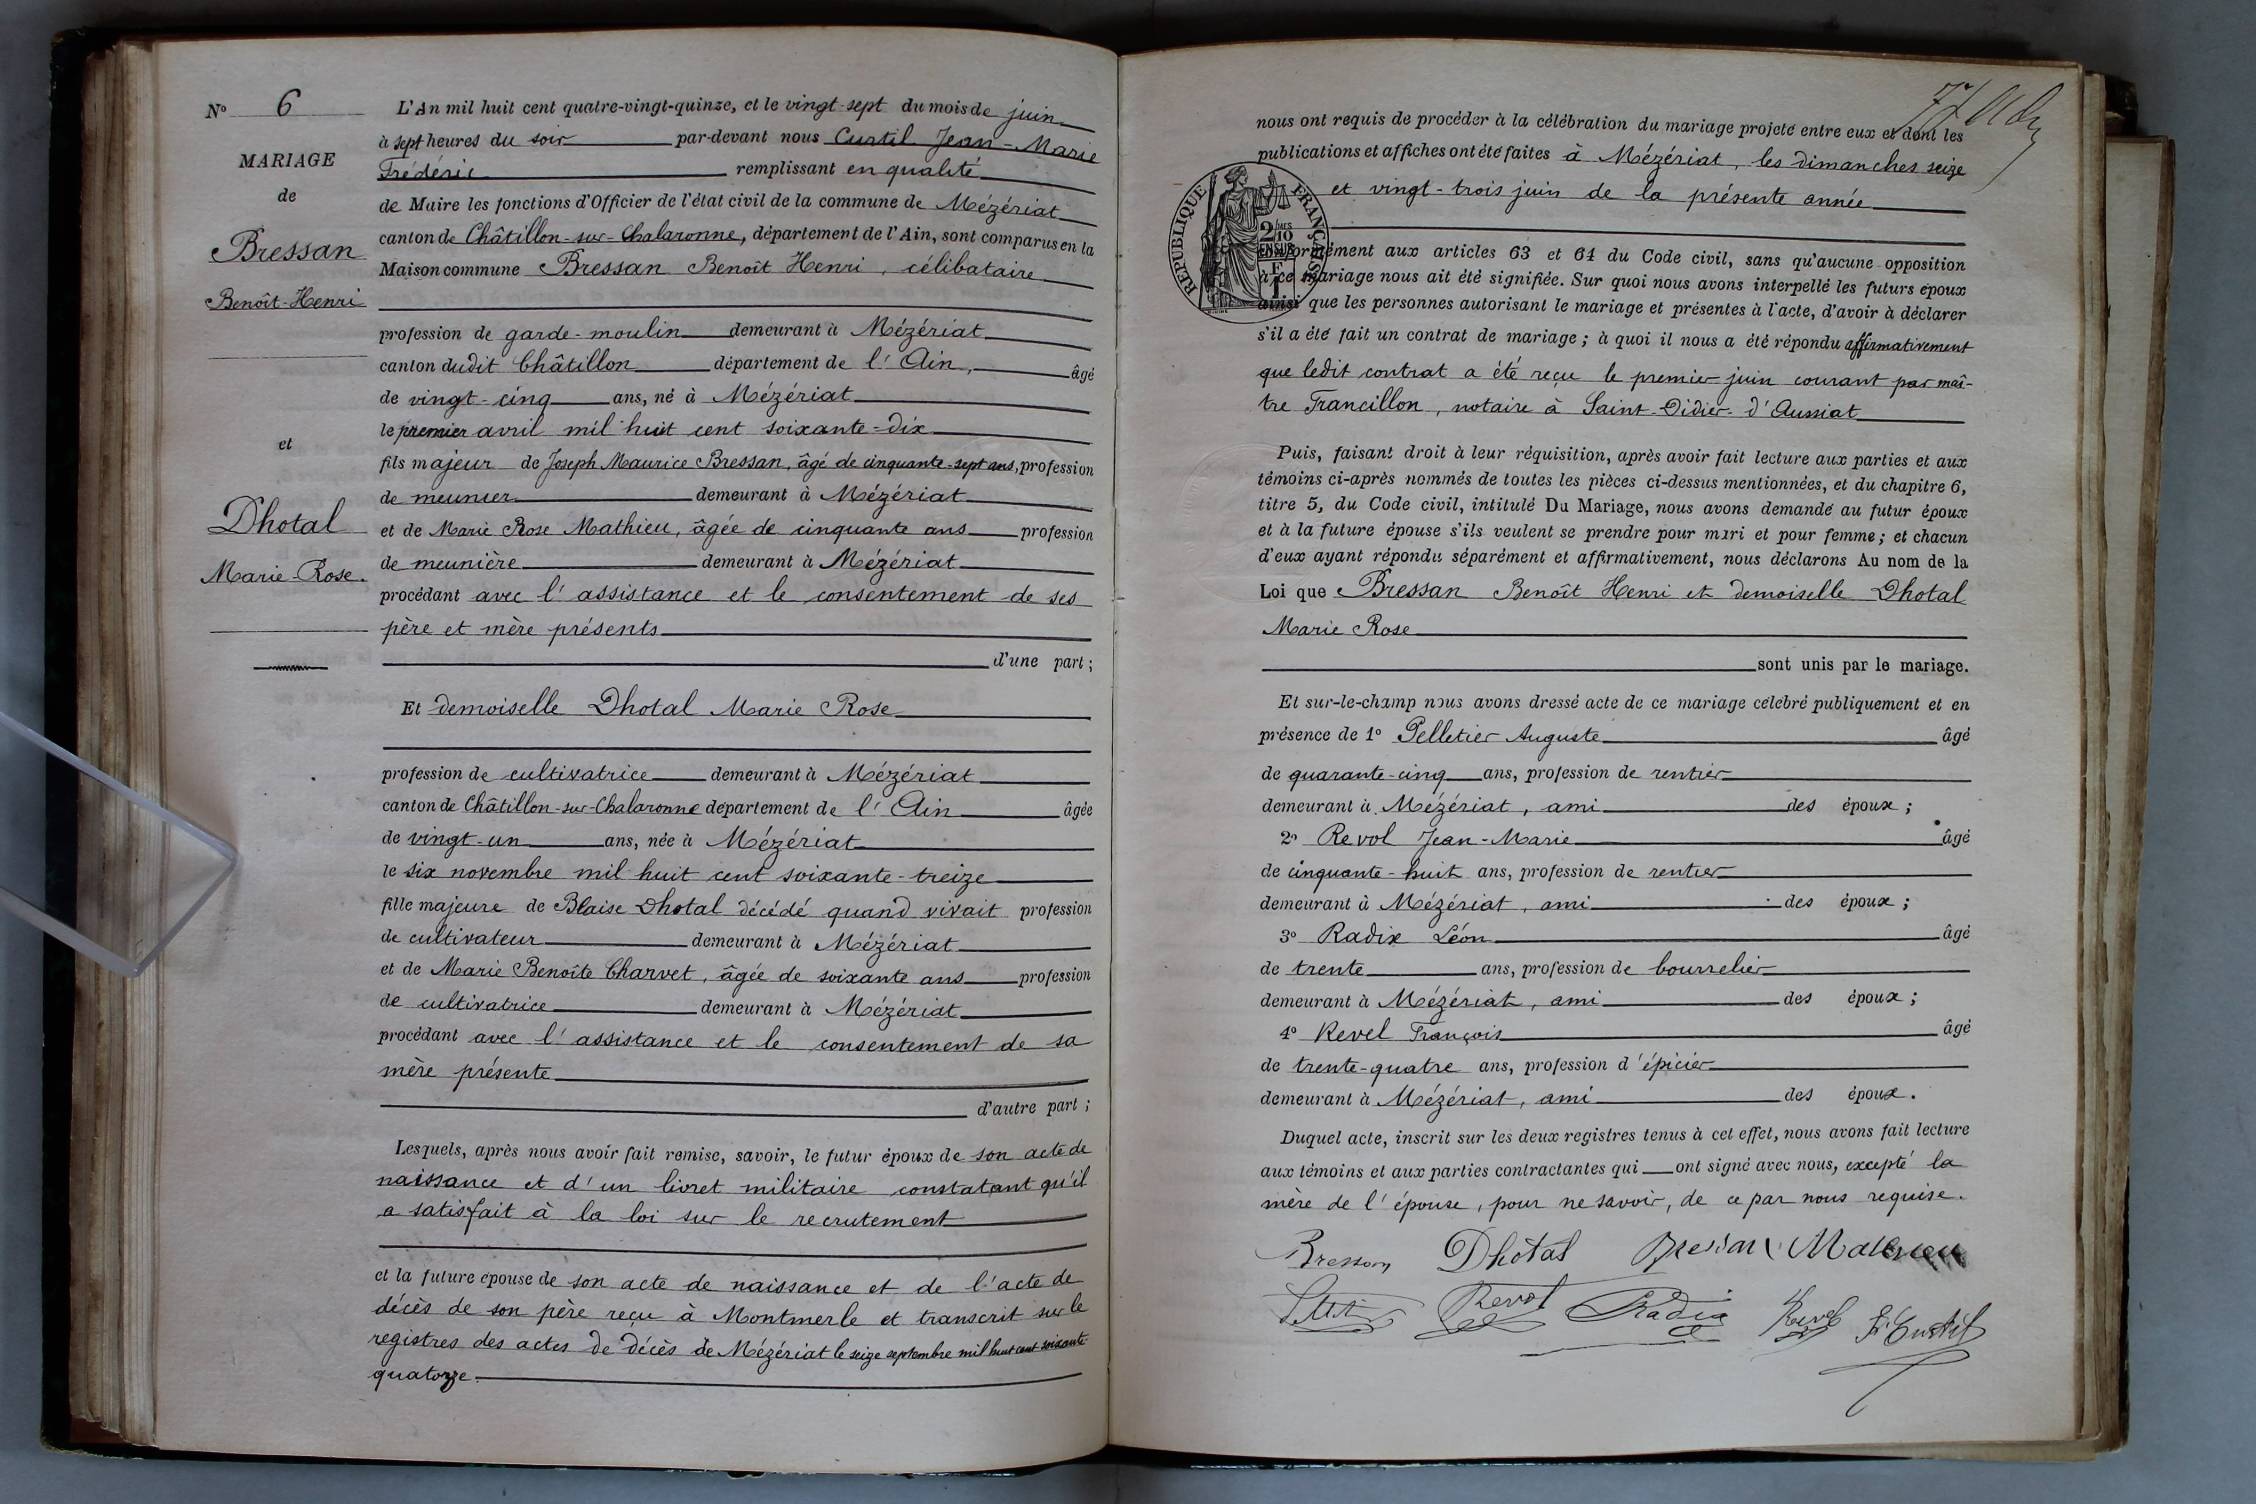 N° 6
MARIAGE
de
Bressan
Benoît-Henri
et
Dhotal
Marie-Rose.
L'An mil huit cent quatre-vingt-quinze, et le vingt-sept du mois de juin
à sept heures du soir par-devant nous Curtil Jean-Marie
Frédéric remplissant en qualité
de Maire les fonctions d'Officier de l'état civil de la commune de Mézériat
canton de Châtillon-sur-Chalaronne, département de l'Ain, sont comparus en la
Maison commune Bressan Benoît Henri, célibataire
profession de garde-moulin demeurant à Mézériat
canton dudit Châtillon département de l'Ain, âgé
de vingt-cinq ans, né à Mézériat
le premier avril mil huit cent soixante-dix
fils majeur de Joseph Maurice Bressan, âgé de cinquante-sept ans, profession
de meunier demeurant à Mézériat
et de Marie Rose Mathieu, âgée de cinquante ans profession
de meunière demeurant à Mézériat
procédant avec l'assistance et le consentement de ses
père et mère présents
d'une part;
Et demoiselle Dhotal Marie Rose
profession de cultivatrice demeurant à Mézériat
canton de Châtillon-sur-Chalaronne département de l'Ain âgée
de vingt-un ans, née à Mézériat
le six novembre mil huit cent soixante-treize
fille majeure de Blaise Dhotal décédé quand vivait profession
de cultivateur demeurant à Mézériat
et de Marie Benoîte Charvet, âgée de soixante ans profession
de cultivatrice demeurant à Mézériat
procédant avec l'assistance et le consentement de sa
mère présente
d'autre part;
Lesquels, après nous avoir fait remise, savoir, le futur époux de son acte de
naissance et d'un livret militaire constatant qu'il
a satisfait à la loi sur le recrutement
et la future épouse de son acte de naissance et de l'acte de
décès de son père reçu à Montmerle et transcrit sur le
registres des actes de décès de Mézériat le seize septembre mil huit cent soixante
quatorze.
nous ont requis de procéder à la célébration du mariage projeté entre eux et dont les
publications et affiches ont été faites à Mézériat, les dimanches seize
et vingt-trois juin de la présente année
RÉPUBLIQUE FRANÇAISE
2/10
EN SUS
conformément aux articles 63 et 64 du Code civil, sans qu'aucune opposition
à ce mariage nous ait été signifiée. Sur quoi nous avons interpellé les futurs époux
ainsi que les personnes autorisant le mariage et présentes à l'acte, d'avoir à déclarer
s'il a été fait un contrat de mariage; à quoi il nous a été répondu affirmativement
que ledit contrat a été reçu le premier juin courant par maî-
tre Francillon, notaire à Saint-Didier-d'Aussiat
Puis, faisant droit à leur réquisition, après avoir fait lecture aux parties et aux
témoins ci-après nommés de toutes les pièces ci-dessus mentionnées, et du chapitre 6,
titre 5, du Code civil, intitulé Du Mariage, nous avons demandé au futur époux
et à la future épouse s'ils veulent se prendre pour mari et pour femme; et chacun
d'eux ayant répondu séparément et affirmativement, nous déclarons Au nom de la
Loi que Bressan Benoît Henri et demoiselle Dhotal
Marie Rose
sont unis par le mariage.
Et sur-le-champ nous avons dressé acte de ce mariage célébré publiquement et en
présence de 1° Pelletier Auguste âgé
de quarante-cinq ans, profession de rentier
demeurant à Mézériat, ami des époux;
2° Revol Jean-Marie âgé
de cinquante-huit ans, profession de rentier
demeurant à Mézériat, ami des époux;
3° Radix Léon âgé
de trente ans, profession de bourrelier
demeurant à Mézériat, ami des époux;
4° Revel François âgé
de trente-quatre ans, profession d'épicier
demeurant à Mézériat, ami des époux.
Duquel acte, inscrit sur les deux registres tenus à cet effet, nous avons fait lecture
aux témoins et aux parties contractantes qui ont signé avec nous, excepté la
mère de l'épouse, pour ne savoir, de ce par nous requise.
Bressan Dhotal Bressan Mathieu
Revol Radix Revel F. Curtil